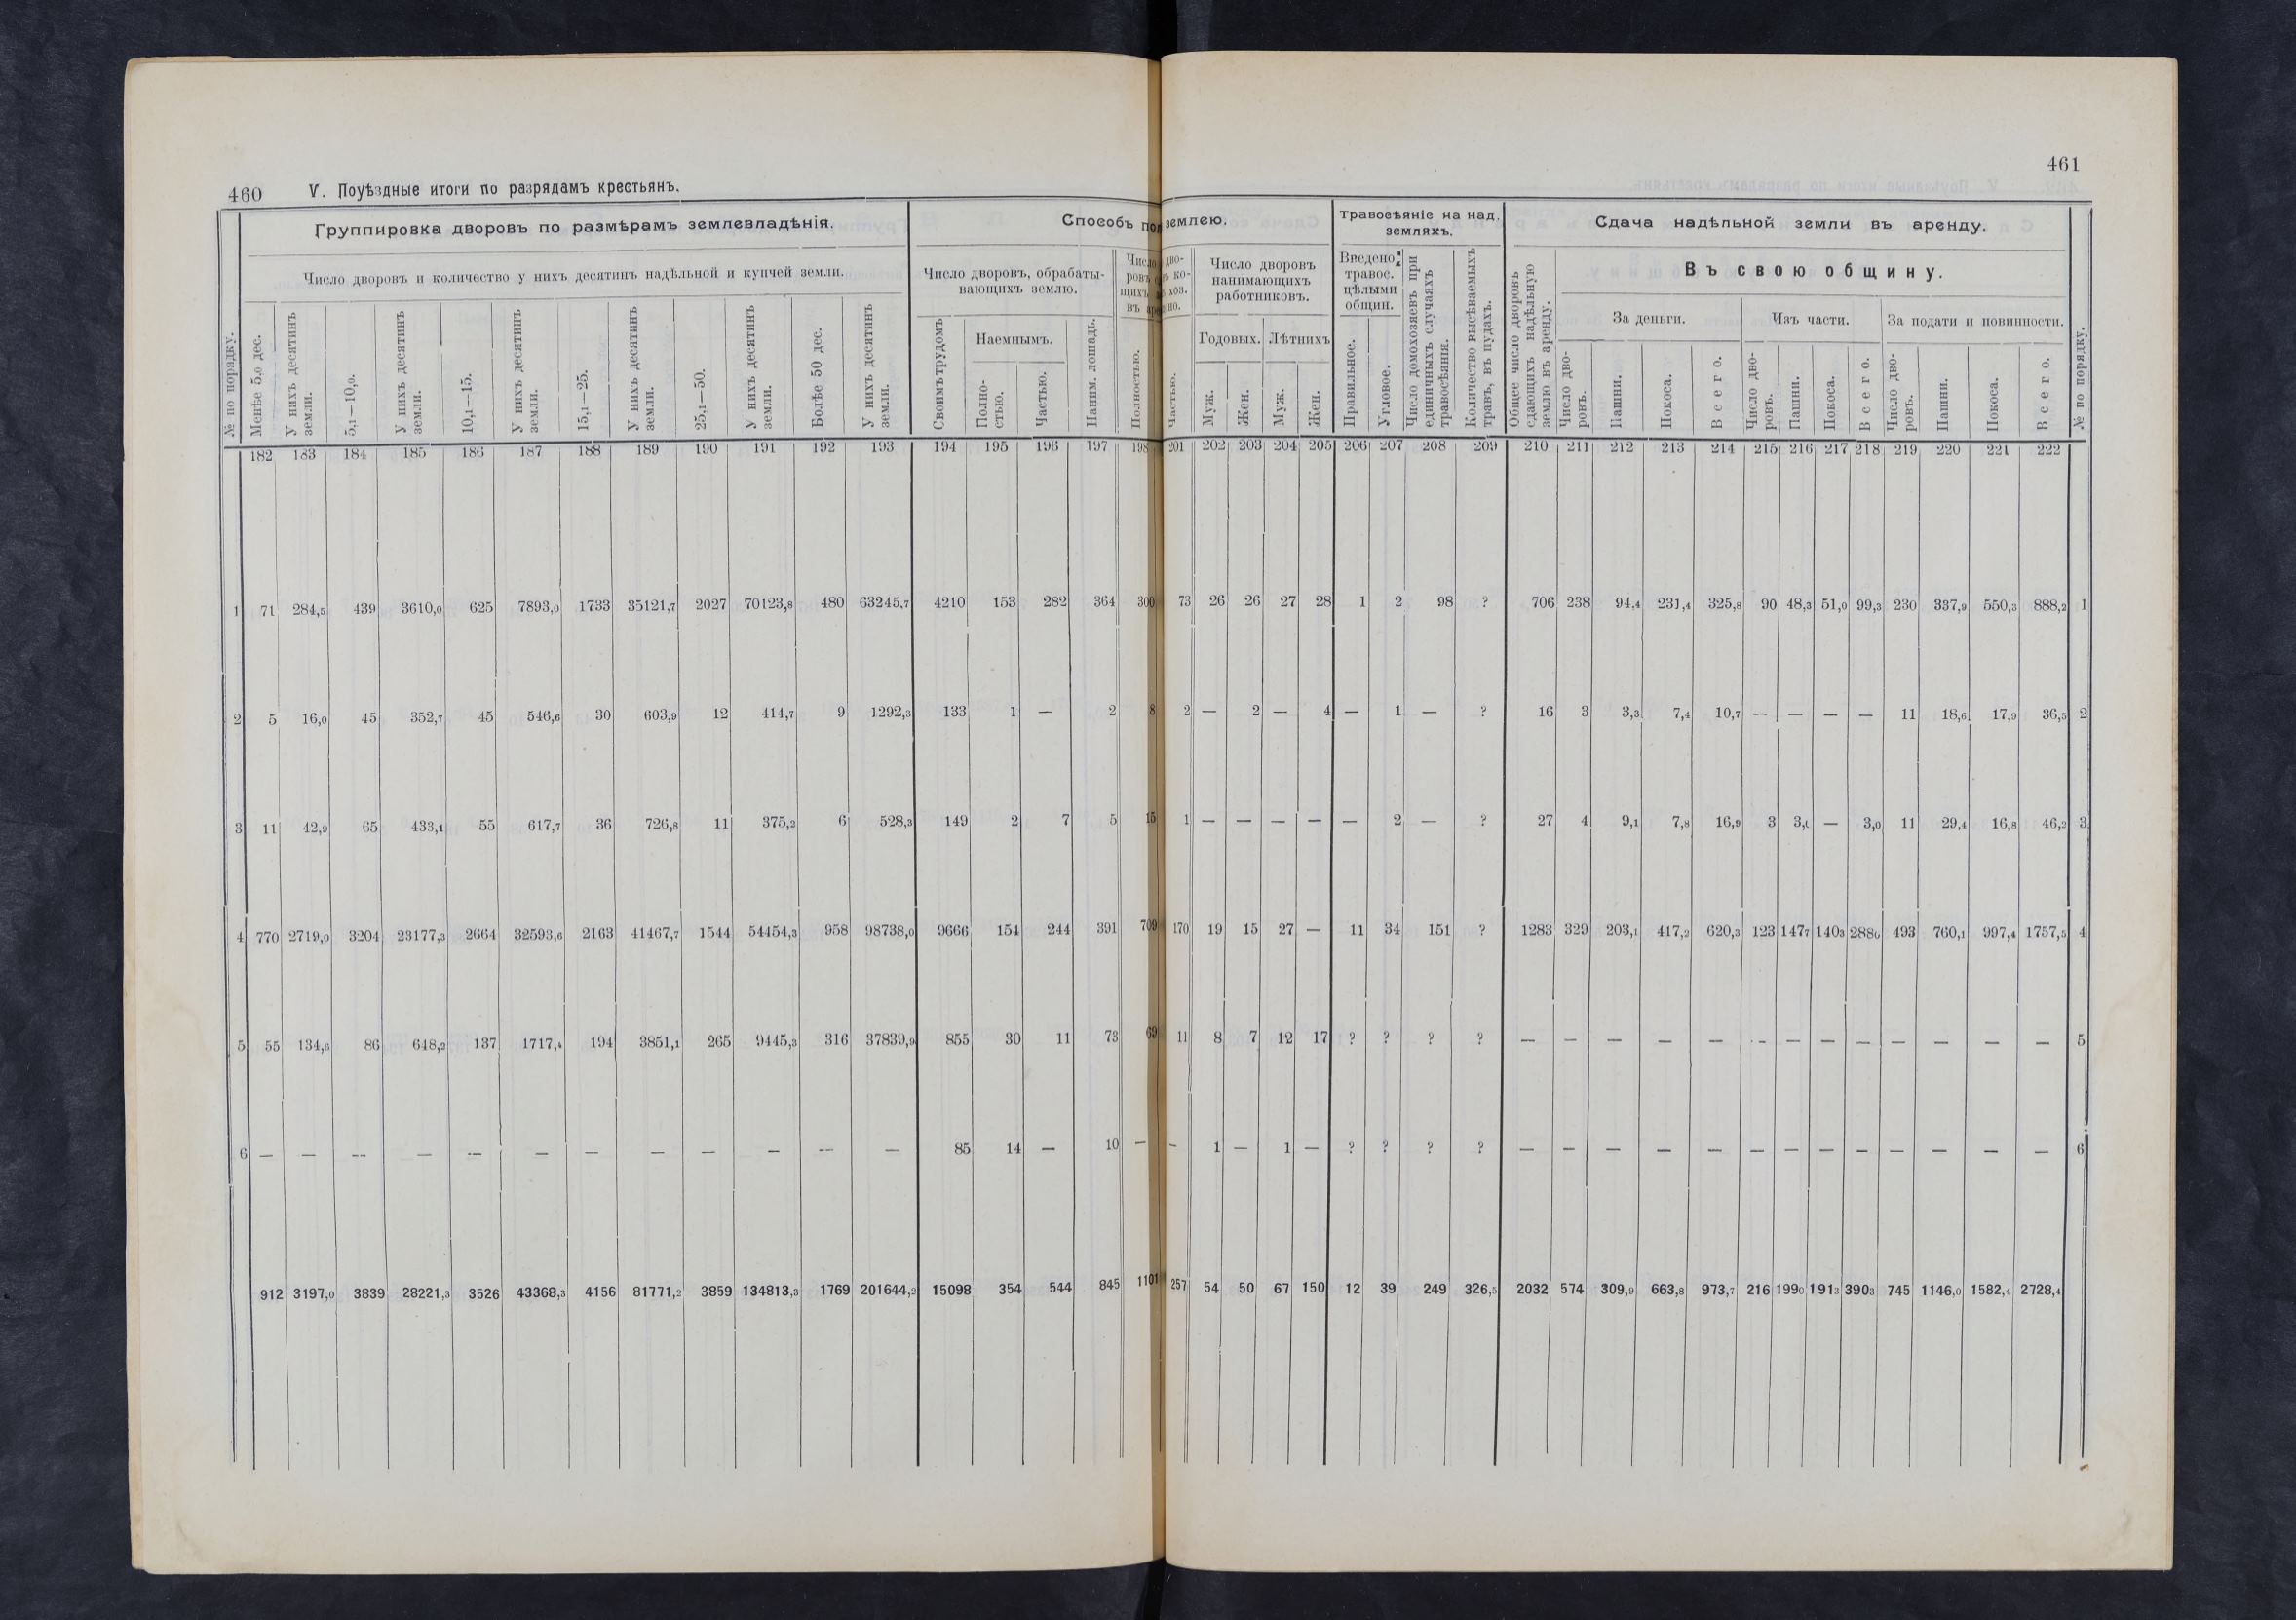 460 V. Поуѣздные итоги по разрядамъ крестьянъ.
461
№ по порядку.
Группировка дворовъ по размѣрамъ землевладѣнія.
Число дворовъ и количество у нихъ десятинъ надѣльной и купчей земли.
Менѣе 5,0 дес.
У нихъ десятинъ земли.
5,1—10,0.
У нихъ десятинъ земли.
10,1—15.
У нихъ десятинъ земли.
15,1—25.
У нихъ десятинъ земли.
25,1—50.
У нихъ десятинъ земли.
Болѣе 50 дес.
У нихъ десятинъ земли.
Способъ землею.
Число дворовъ, обрабаты-
вающихъ землю.
Своимъ трудомъ.
Наемнымъ.
Полно-
стью.
Частью.
Наним. лошадь.
Полностью.
Частью.
Число дворовъ
нанимающихъ
работниковъ.
Годовыхъ. Лѣтнихъ
Муж.
Жен.
Муж.
Жен.
Травосѣяніе на над.
земляхъ.
Введено
травос.
цѣлыми
общин.
Правильное.
Угловое.
Число домохозяевъ при
единичныхъ случаяхъ
травосѣянія.
Количество высѣваемыхъ
травъ, въ пудахъ.
Сдача надѣльной земли въ аренду.
Общее число дворовъ
сдающихъ надѣльную
землю въ аренду.
Въ свою общину.
За деньги.
Число дво-
ровъ.
Пашни.
Покоса.
Всего.
Изъ части.
Число дво-
ровъ.
Пашни.
Покоса.
Всего.
За подати и повинности.
Число дво-
ровъ.
Пашни.
Покоса.
Всего.
№ по порядку.
182 183 184 185 186 187 188 189 190 191 192 193 194 195 196 197 198 201 202 203 204 205 206 207 208 209 210 211 212 213 214 215 216 217 218 219 220 221 222
1 71 284,5 439 3610,0 625 7893,0 1733 35121,7 2027 70123,8 480 63245,7 4210 153 282 364 300 73 26 26 27 28 1 2 98 ? 706 238 94,4 231,4 325,8 90 48,3 51,0 99,3 230 337,9 550,3 888,2 1
2 5 16,0 45 352,7 45 546,6 30 603,9 12 414,7 9 1292,3 133 1 — 2 8 2 — 2 — 4 — 1 — ? 16 3 3,3 7,4 10,7 — — — — 11 18,6 17,9 36,5 2
3 11 42,9 65 433,1 55 617,7 36 726,8 11 375,2 6 528,3 149 2 7 5 15 1 — — — — — 2 — ? 27 4 9,1 7,8 16,9 3 3, — 3,0 11 29,4 16,8 46,2 3
4 770 2719,0 3204 23177,3 2664 32593,6 2163 41467,7 1544 54454,3 958 98738,0 9666 154 244 391 709 170 19 15 27 — 11 34 151 ? 1283 329 203,1 417,2 620,3 123 1477 1403 2880 493 760,1 997,4 1757,5 4
5 55 134,6 86 648,2 137 1717,4 194 3851,1 265 9445,3 316 37839,9 855 30 11 73 69 11 8 7 12 17 ? ? ? ? — — — — — — — — — — — — — 5
6 — — — — — — — — — — — — 85 14 — 10 — — 1 — 1 — ? ? ? ? — — — — — — — — — — — — — 6
912 3197,0 3839 28221,3 3526 43368,3 4156 81771,2 3859 134813,3 1769 201644,2 15098 354 544 845 1101 257 54 50 67 150 12 39 249 326,5 2032 574 309,9 663,8 973,7 216 1990 1913 3903 745 1146,0 1582,4 2728,4